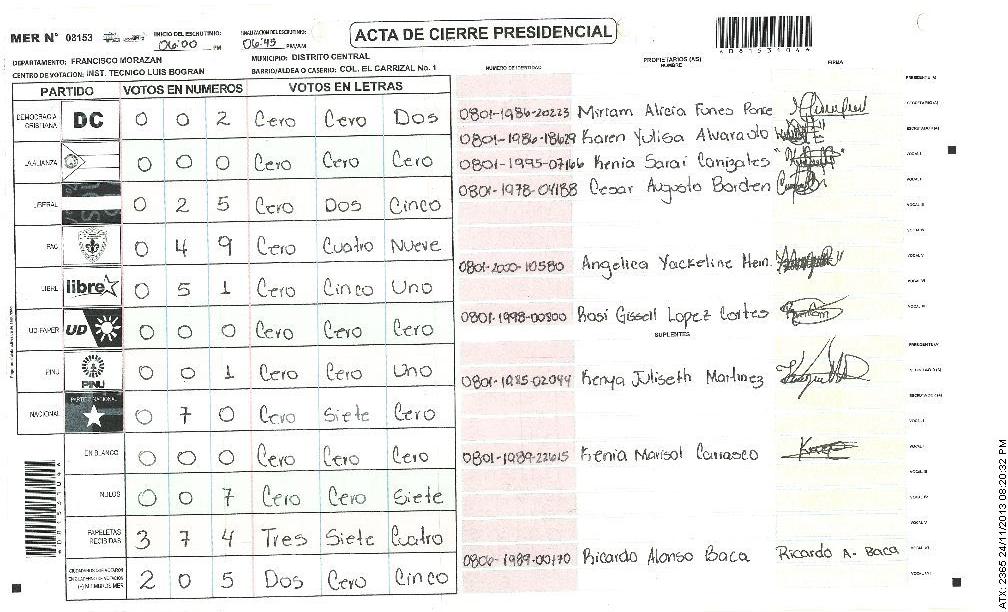 ACTA DE CIERRE PRESIDENCIAL
MER N° 08153
INICIO DEL ESCRUTINIO: 06:00 PM
FINALIZACION DEL ESCRUTINIO: 06:45 PM/AM
DEPARTAMENTO: FRANCISCO MORAZAN
MUNICIPIO: DISTRITO CENTRAL
CENTRO DE VOTACION: INST. TECNICO LUIS BOGRAN
BARRIO/ALDEA O CASERIO: COL. EL CARRIZAL No. 1
PARTIDO VOTOS EN NUMEROS VOTOS EN LETRAS
DEMOCRACIA CRISTIANA DC 0 0 2 Cero Cero Dos
LA ALIANZA 0 0 0 Cero Cero Cero
LIBERAL 0 2 5 Cero Dos Cinco
PAC 0 4 9 Cero Cuatro Nueve
LIBRE libre 0 5 1 Cero Cinco Uno
UD-FAPER UD 0 0 0 Cero Cero Cero
PINU PINU 0 0 1 Cero Cero Uno
NACIONAL PARTIDO NACIONAL 0 7 0 Cero Siete Cero
EN BLANCO 0 0 0 Cero Cero Cero
NULOS 0 0 7 Cero Cero Siete
PAPELETAS RECIBIDAS 3 7 4 Tres Siete Cuatro
2 0 5 Dos Cero Cinco
NUMERO DE IDENTIDAD PROPIETARIOS (AS) NOMBRE FIRMA
0801-1986-20223 Miriam Alicia Funes Ponce
0801-1986-18629 Karen Yulisa Alvarado
0801-1995-07166 Kenia Sarai Canizales
0801-1978-04188 Cesar Augusto Barden
0801-2000-10580 Angelica Yackeline Hern.
0801-1998-00800 Rosi Gissell Lopez Cortes
SUPLENTES
0801-1985-02044 Kenya Juliseth Martinez
0801-1989-22615 Kenia Marisol Carrasco
0800-1989-00170 Ricardo Alonso Baca Ricardo A. Baca
ATX: 2365 24/11/2013 08:20:32 PM